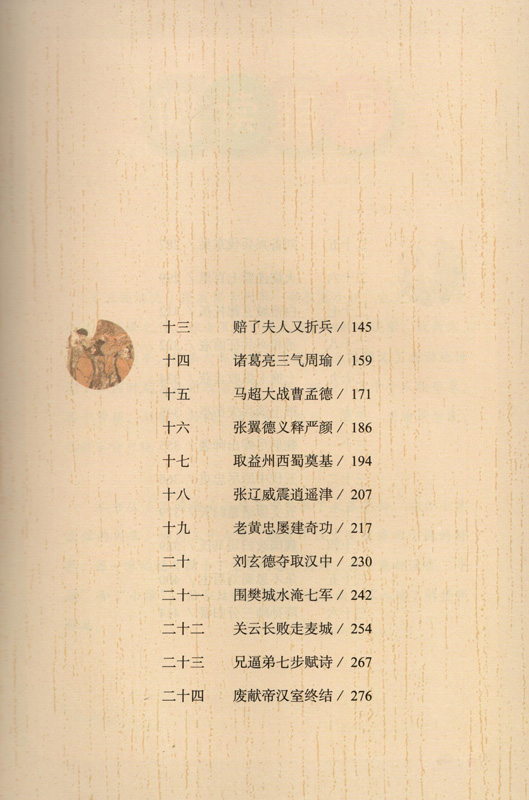 十三 赔了夫人又折兵 / 145
十四 诸葛亮三气周瑜 / 159
十五 马超大战曹孟德 / 171
十六 张翼德义释严颜 / 186
十七 取益州西蜀奠基 / 194
十八 张辽威震逍遥津 / 207
十九 老黄忠屡建奇功 / 217
二十 刘玄德夺取汉中 / 230
二十一 围樊城水淹七军 / 242
二十二 关云长败走麦城 / 254
二十三 兄逼弟七步赋诗 / 267
二十四 废献帝汉室终结 / 276